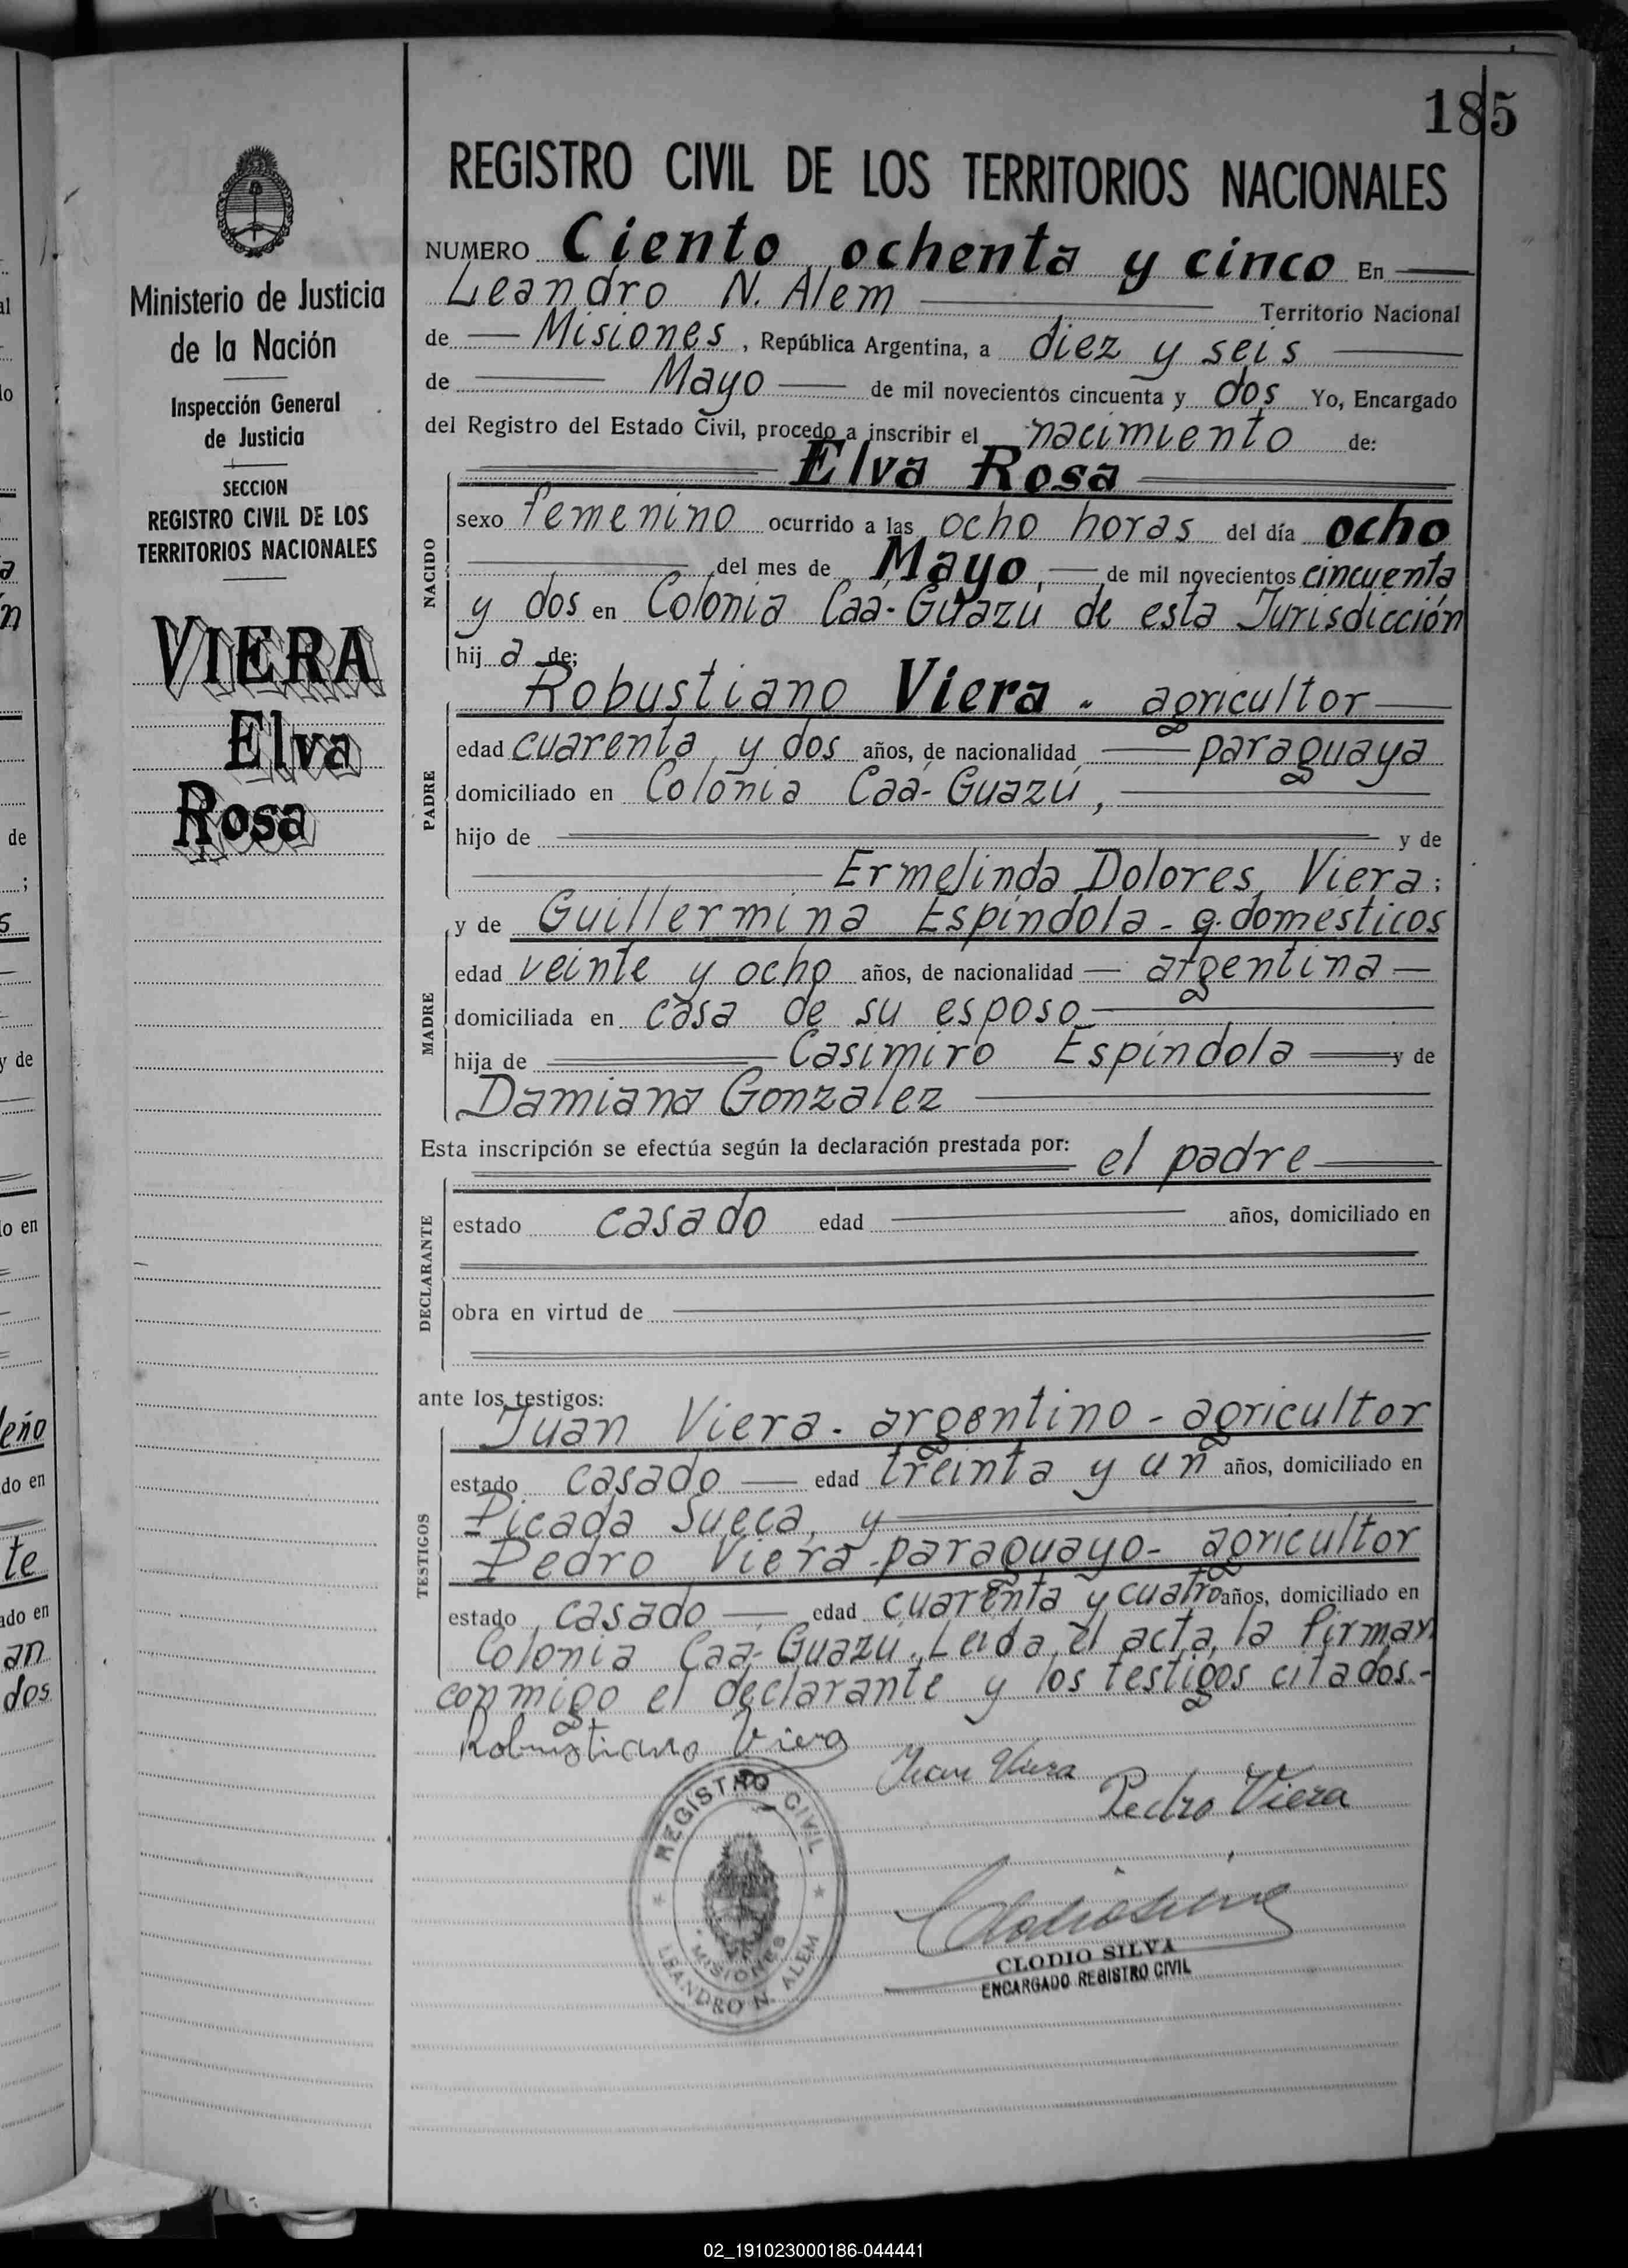 185
REGISTRO CIVIL DE LOS TERRITORIOS NACIONALES
Ministerio de Justicia
de la Nación
Inspección General
de Justicia
SECCION
REGISTRO CIVIL DE LOS
TERRITORIOS NACIONALES
VIERA
Elva
Rosa
NUMERO Ciento ochenta y cinco En
Leandro N. Alem Territorio Nacional
de Misiones, República Argentina, a diez y seis
de Mayo de mil novecientos cincuenta y dos Yo, Encargado
del Registro del Estado Civil, procedo a inscribir el nacimiento de:
Elva Rosa
NACIDO
sexo femenino ocurrido a las ocho horas del día ocho
del mes de Mayo, de mil novecientos cincuenta
y dos en Colonia Caá-Guazú de esta Jurisdicción
hij a de;
Robustiano Viera - agricultor
PADRE
edad cuarenta y dos años, de nacionalidad paraguaya
domiciliado en Colonia Caá-Guazú,
hijo de y de
Ermelinda Dolores Viera;
y de Guillermina Espíndola - q. domésticos
MADRE
edad veinte y ocho años, de nacionalidad argentina
domiciliada en casa de su esposo
hija de Casimiro Espíndola y de
Damiana Gonzalez
Esta inscripción se efectúa según la declaración prestada por: el padre
DECLARANTE
estado casado edad años, domiciliado en
obra en virtud de
ante los testigos:
Juan Viera - argentino - agricultor
TESTIGOS
estado casado edad treinta y un años, domiciliado en
Picada Sueca, y
Pedro Viera - paraguayo - agricultor
estado casado edad cuarenta y cuatro años, domiciliado en
Colonia Caá-Guazú. Leída el acta, la firman
conmigo el declarante y los testigos citados.-
Robustiano Viera
Juan Viera
Pedro Viera
REGISTRO CIVIL
MISIONES
LEANDRO N. ALEM
Clodio Silva
CLODIO SILVA
ENCARGADO REGISTRO CIVIL
02_191023000186-044441